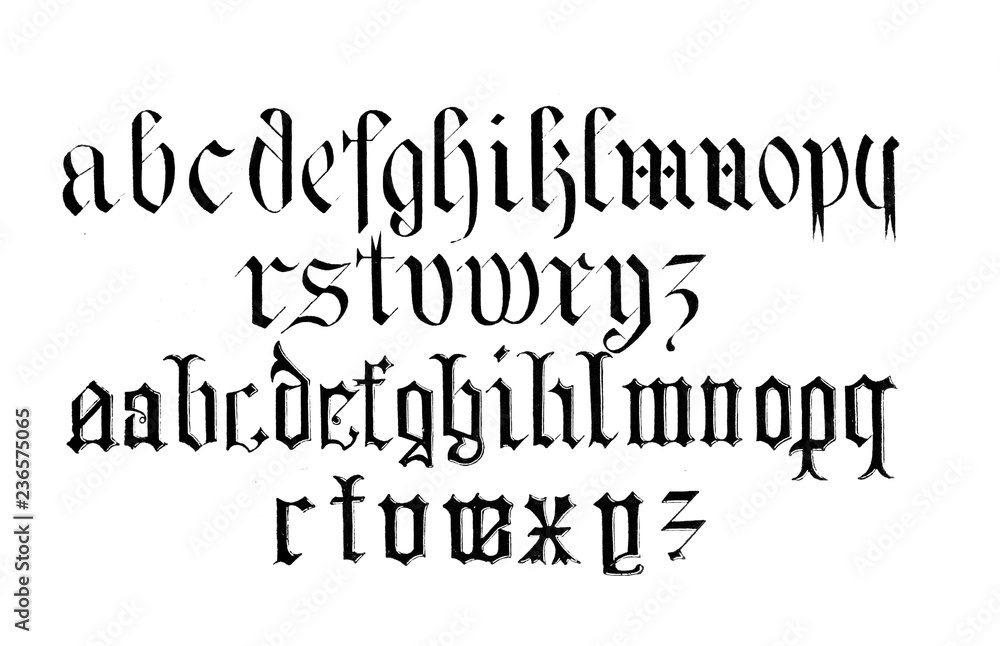 abcdefghiklmnopq
rstvwxyz
aabcdefghiklmnopq
rtvwxyz
Adobe Stock | #236575065